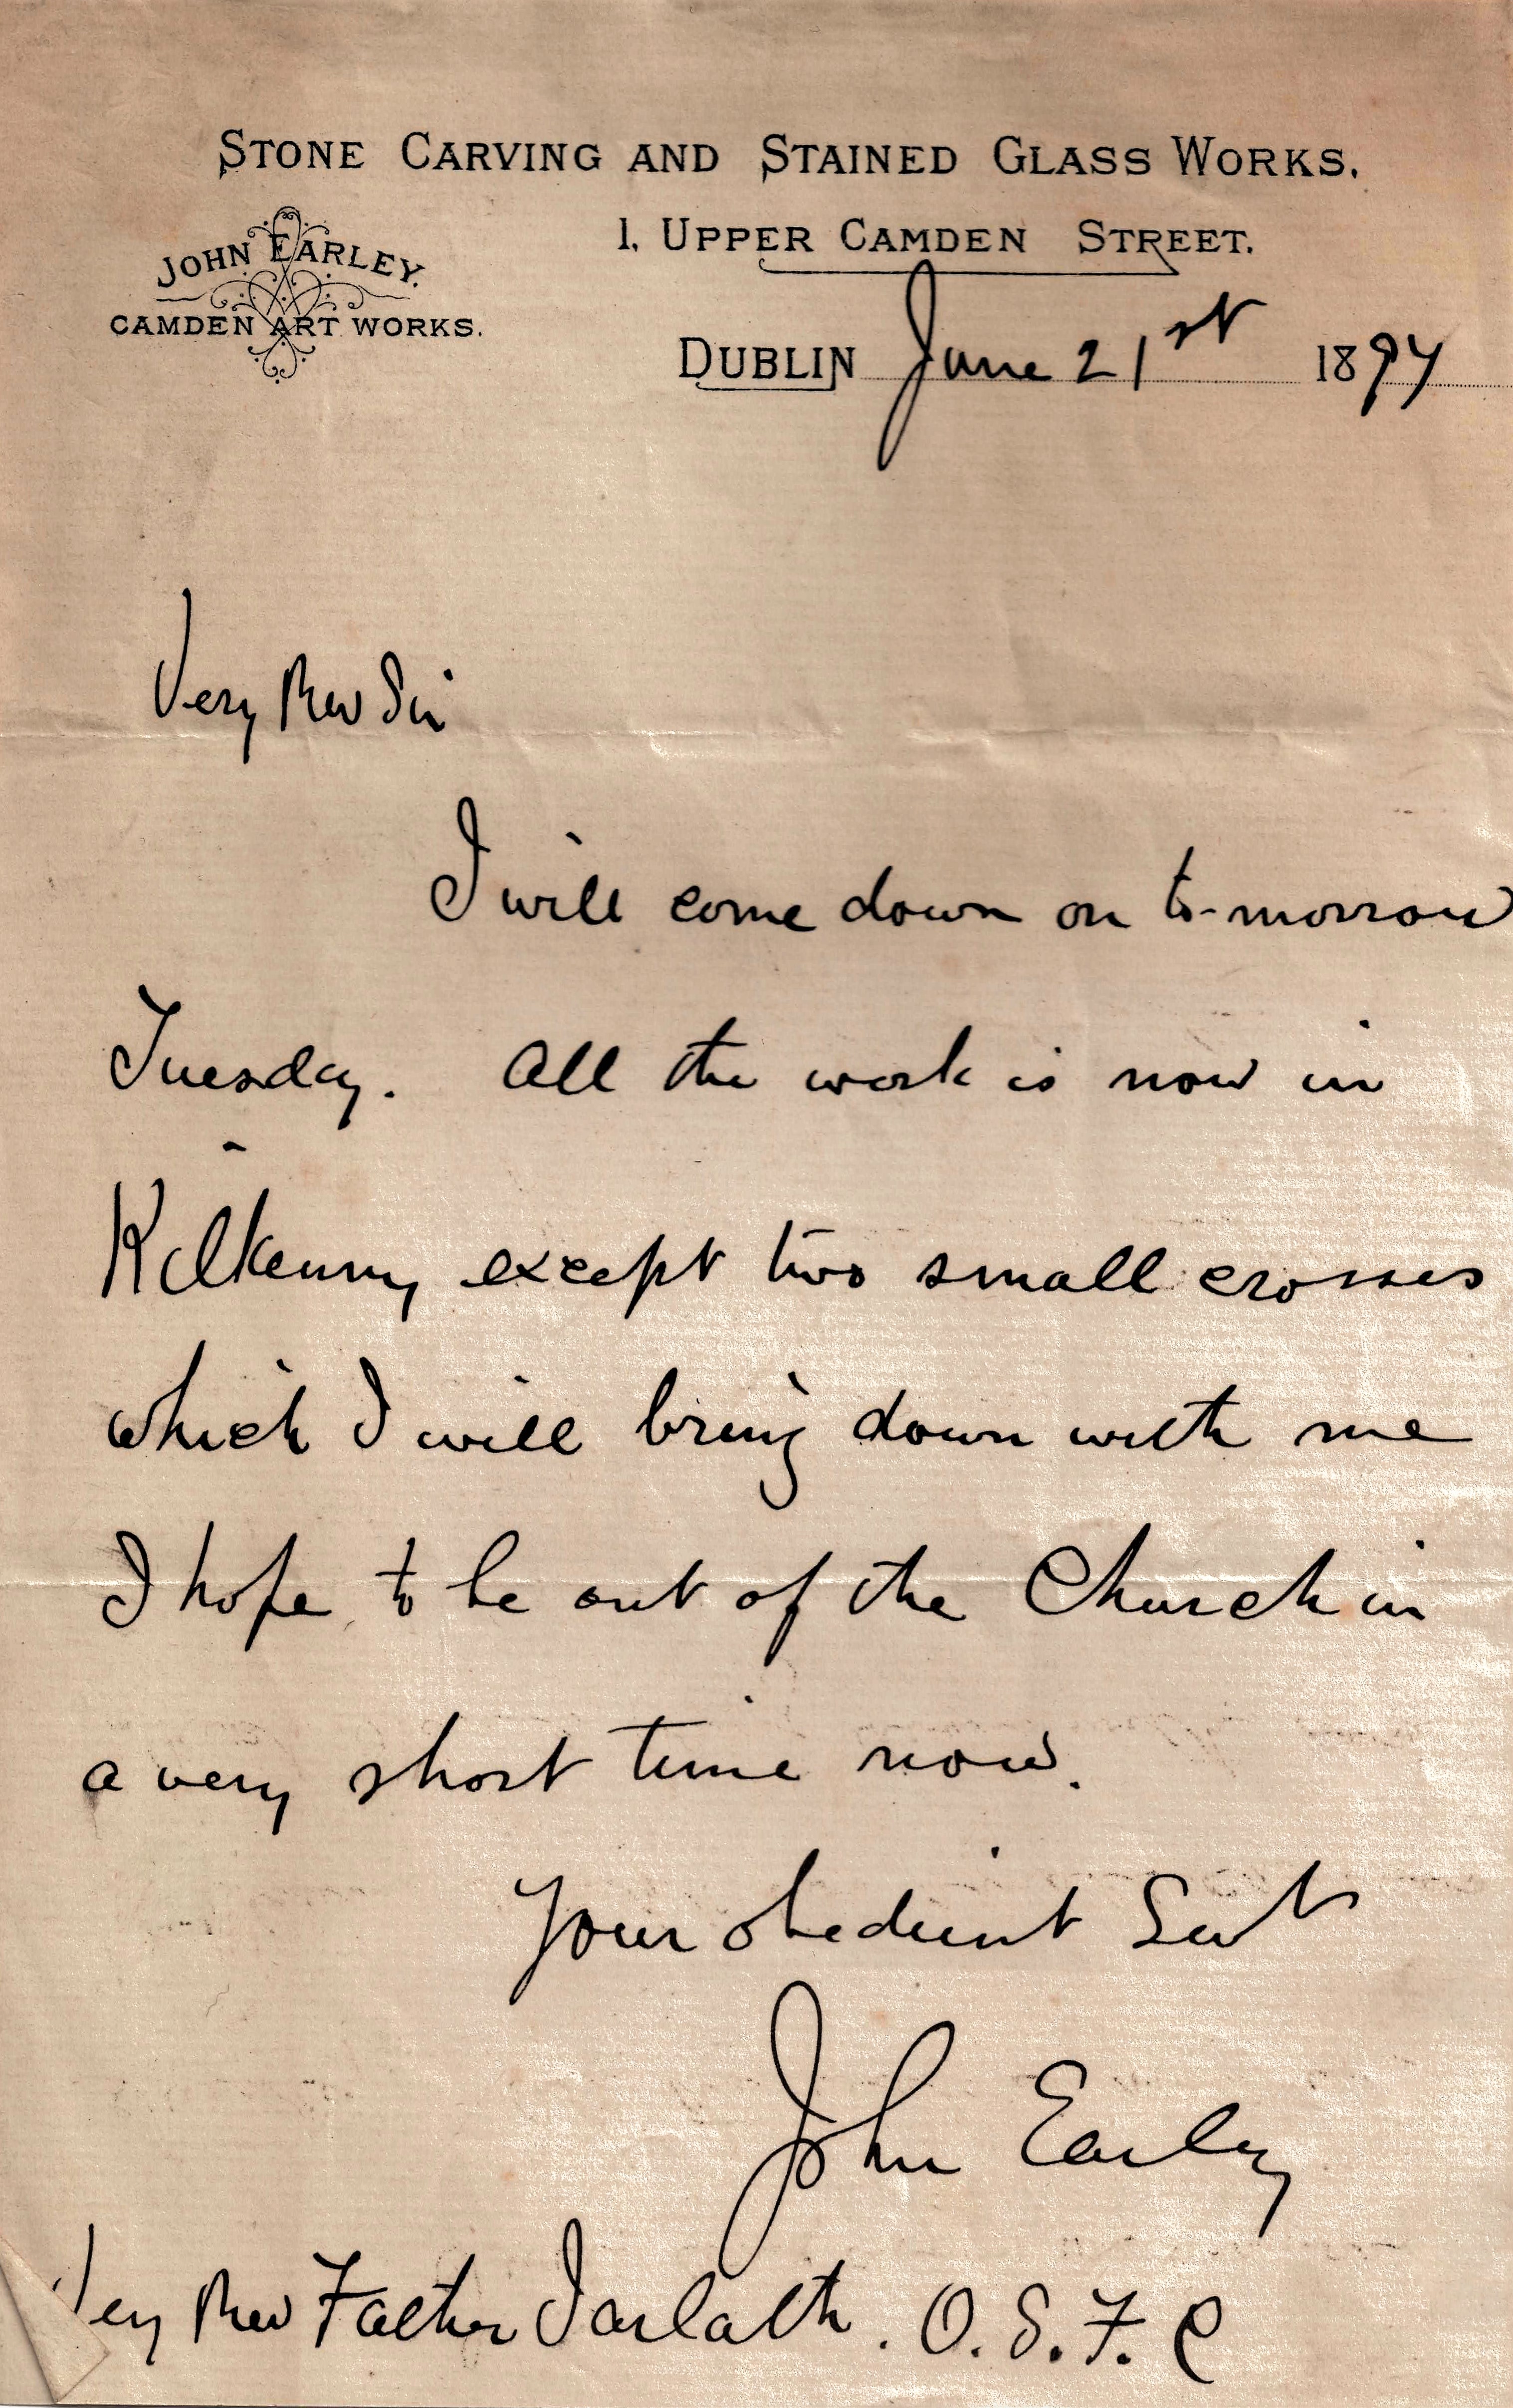 STONE CARVING AND STAINED GLASS WORKS.
1, UPPER CAMDEN STREET.
JOHN EARLEY.
CAMDEN ART WORKS.
DUBLIN June 21st 1897
Very Rev Sir
I will come down on to-morrow
Tuesday. All the work is now in
Kilkenny except two small crosses
which I will bring down with me
I hope to be out of the Church in
a very short time now.
Your obedient Servt
John Earley
Very Rev Father Jarlath. O.S.F.C